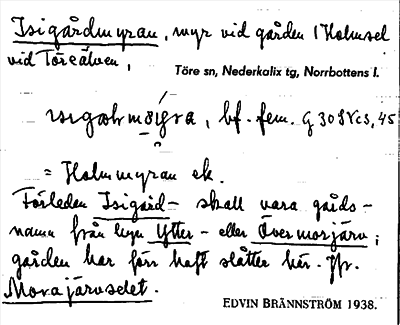 Isigårdmyran, myr vid gården 1 Holmsel
vid Töreälven,
Töre sn, Nederkalix tg, Norrbottens l.
bf. fem. G 30 S V c3, 45
= Holmmyran ek.
Förleden Isigård- skall vara gårds-
namn från byn Ytter- eller Övermorjärv;
gården har förr haft slåtter här. Jfr.
Morajärvsdet.
EDVIN BRÄNNSTRÖM 1938.